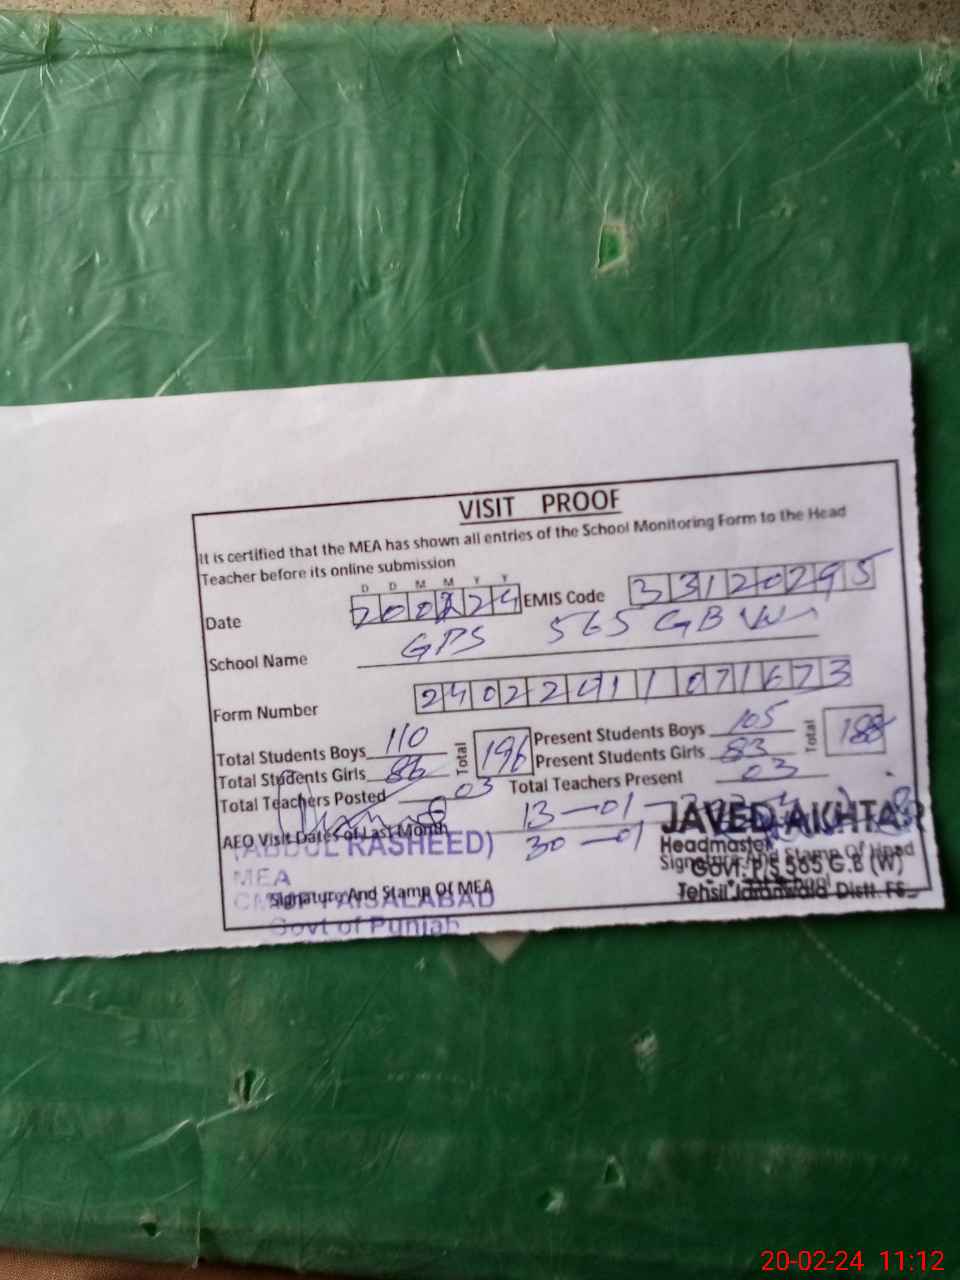 VISIT PROOF
It is certified that the MEA has shown all entries of the School Monitoring Form to the Head
Teacher before its online submission
D D M M Y Y
Date 200224 EMIS Code 33120295
School Name GPS 565 GB
Form Number 24022011071673
Total Students Boys 110 Total 196 Present Students Boys 105 Total 188
Total Students Girls 86 Present Students Girls 83
Total Teachers Posted 03 Total Teachers Present 03
AEO Visit Dates of Last Month 13-01-
30-01
(ABDUL RASHEED)
MEA
Signature And Stamp Of MEA
FAISALABAD
Govt of Punjab
JAVED AKHTAR
Headmaster
Signature And Stamp Of Head
Govt. P/S 565 G.B (W)
Tehsil Jaranwala Distt. FS
20-02-24 11:12